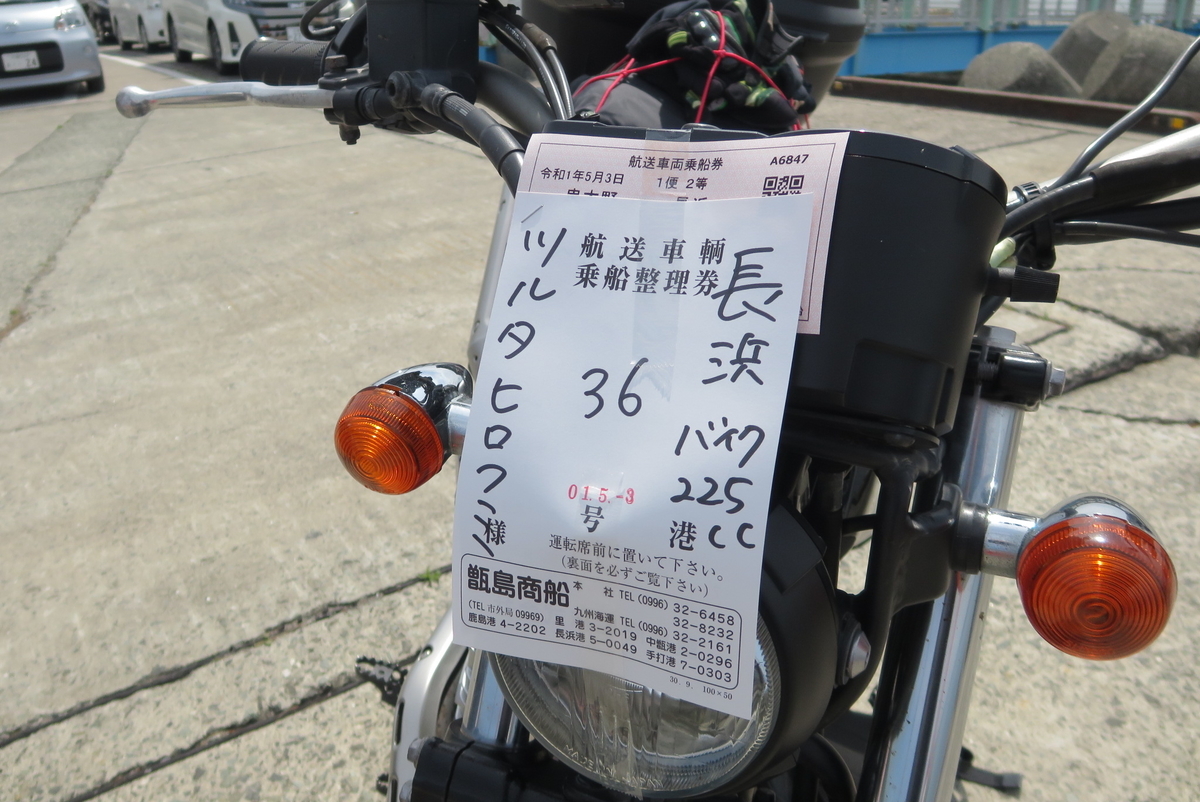 航送車両乗船券 A6847
令和1年5月3日 1便 2等
串木野 長浜
航送車輌
乗船整理券
長浜
バイク
225
cc
港
36
01.5.-3
号
ツルタヒロフミ様
運転席前に置いて下さい。
(裏面を必ずご覧下さい)
甑島商船 本社 TEL(0996) 32-6458
32-8232
九州海運 TEL(0996) 32-2161
(TEL 市外局 09969) 里港 3-2019 中甑港 2-0296
鹿島港 4-2202 長浜港 5-0049 手打港 7-0303
30.9. 100×50